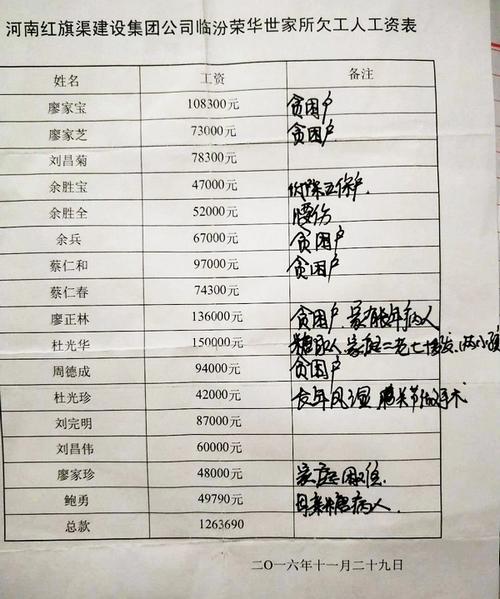 河南红旗渠建设集团公司临汾荣华世家所欠工人工资表
姓名 工资 备注
廖家宝 108300元 贫困户
廖家芝 73000元 贫困户
刘昌菊 78300元
余胜宝 47000元 五保户
余胜全 52000元 腰伤
余兵 67000元 贫困户
蔡仁和 97000元 贫困户
蔡仁春 74300元
廖正林 136000元 贫困户、家有长年病人
杜光华 150000元 家庭二老七十多岁、两小孩
周德成 94000元 贫困户
杜光珍 42000元 长年风湿 膝关节做手术
刘完明 87000元
刘昌伟 60000元
廖家珍 48000元 家庭困难
鲍勇 49790元 母亲糖病人
总款 1263690
二〇一六年十一月二十九日